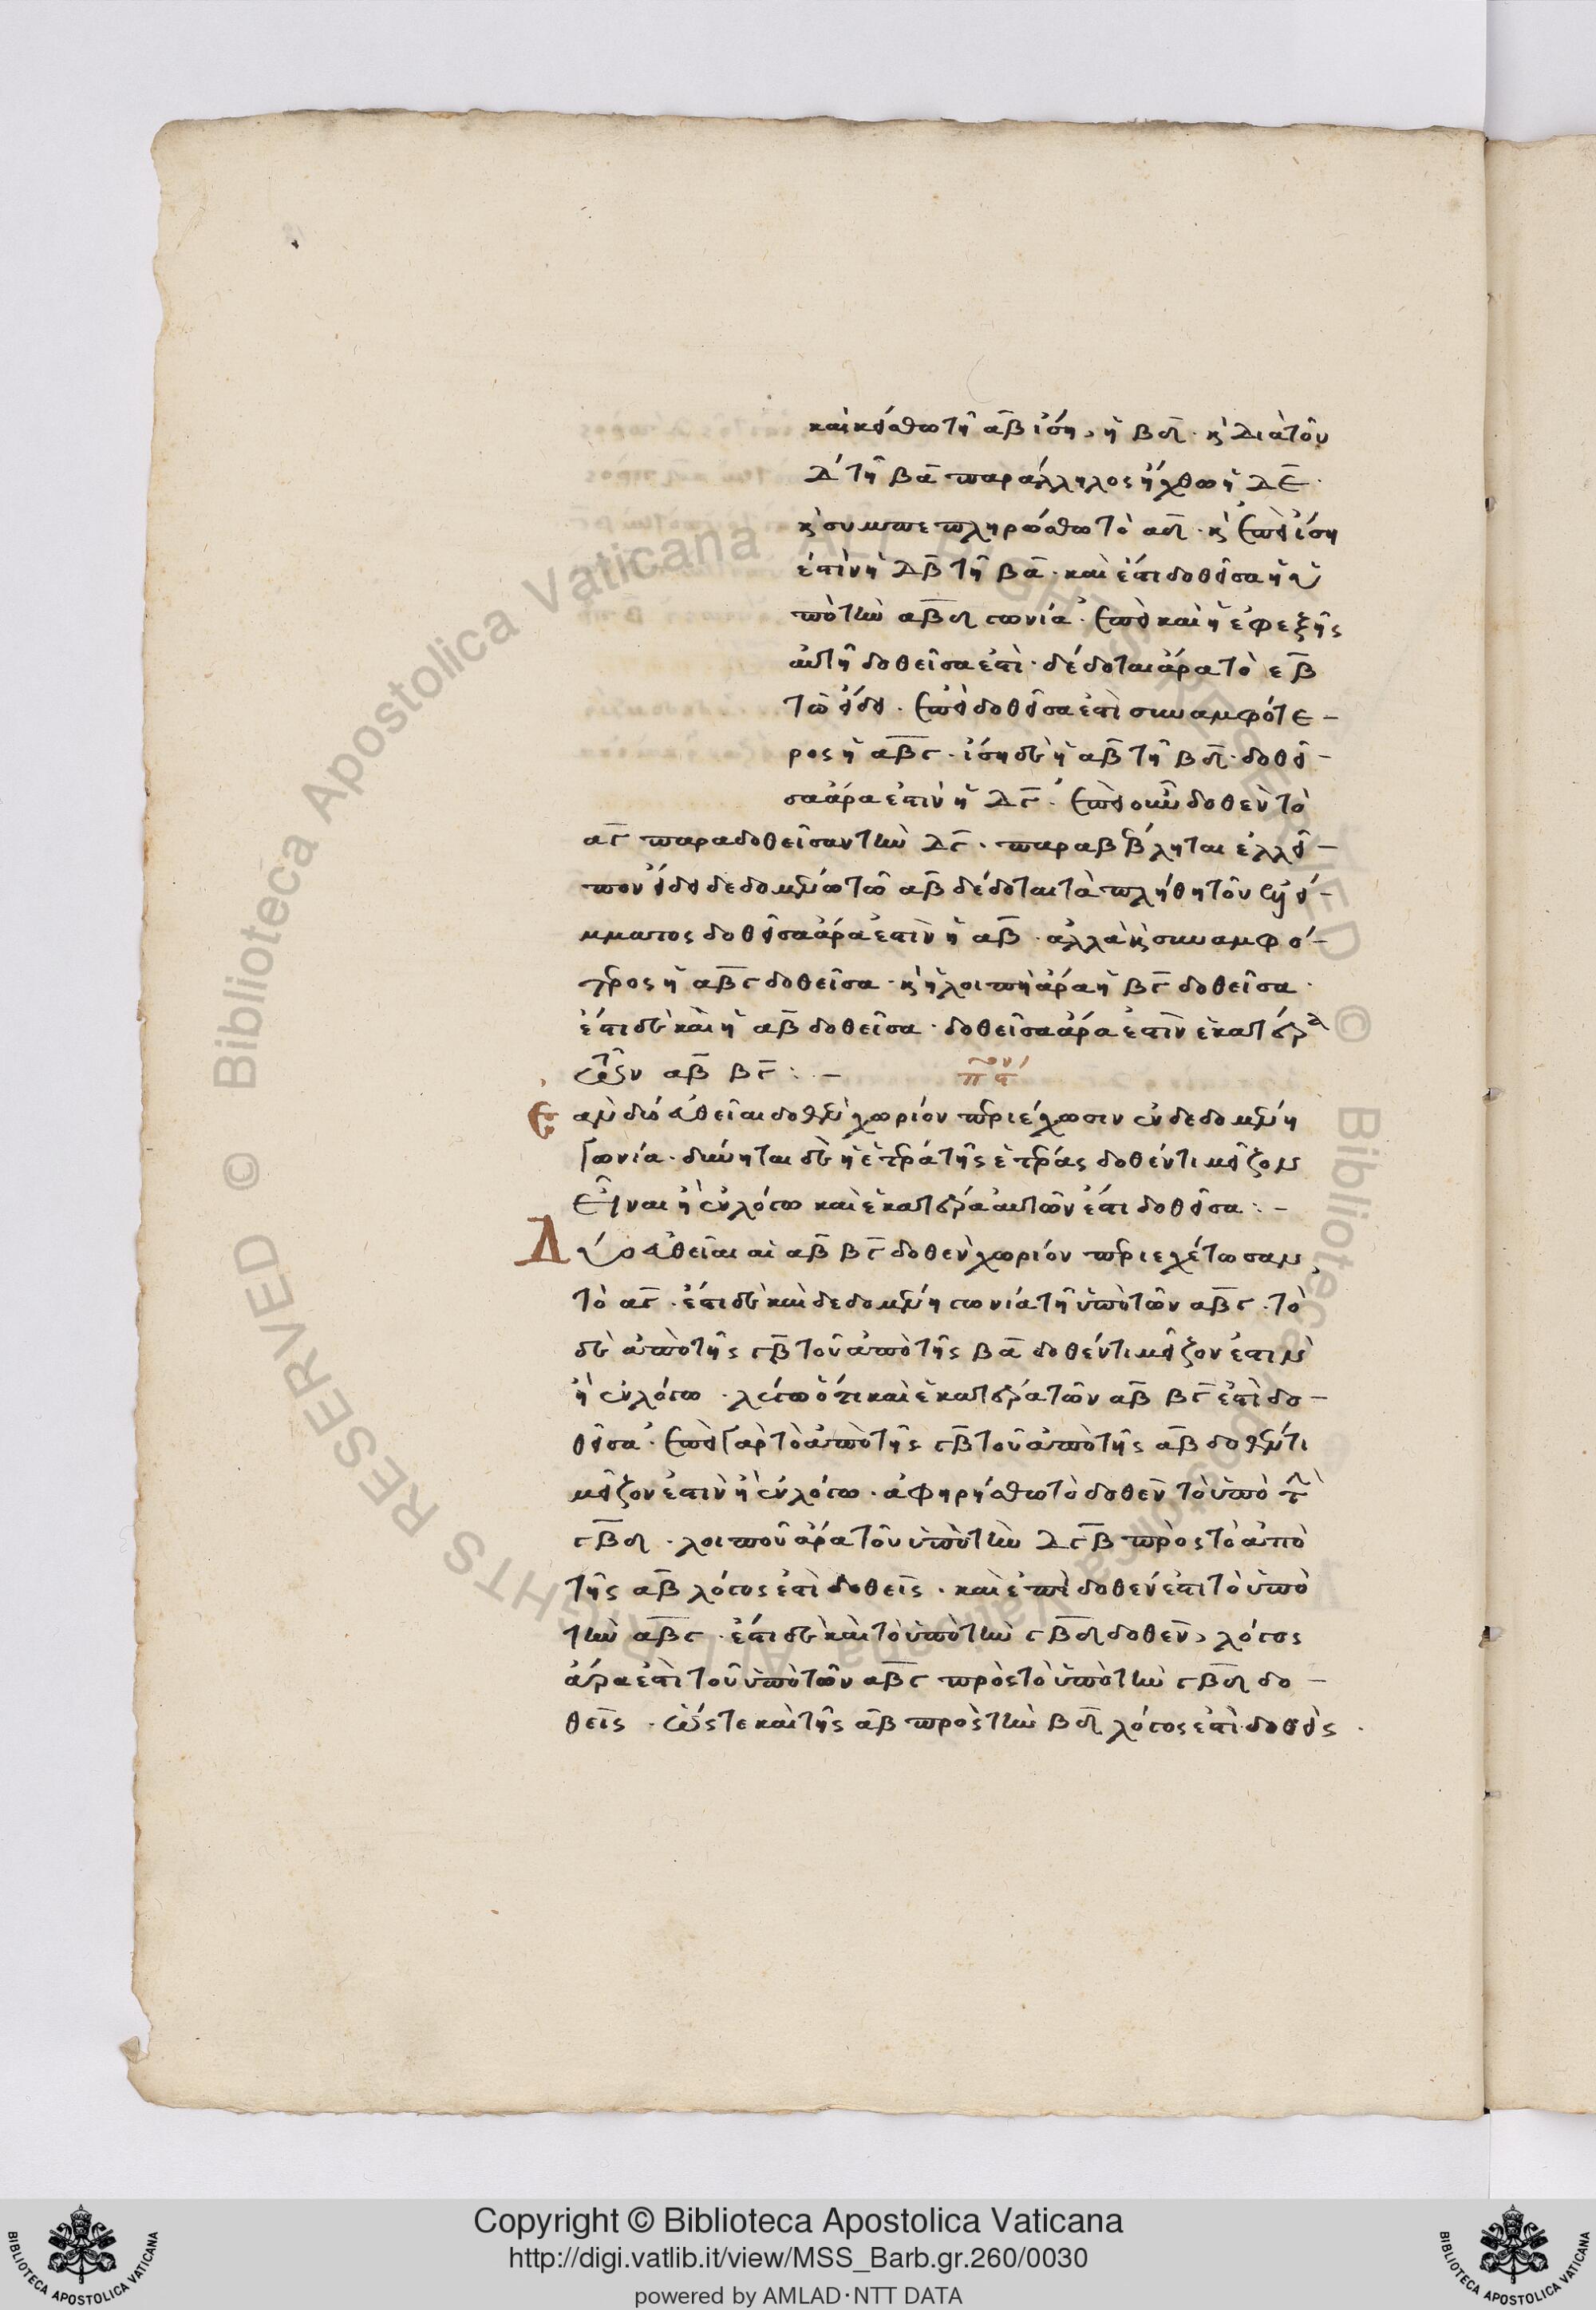 καὶ κείσθω τῇ αβ ἴση, ἡ βδ. κ̀ διὰ τοῦ
Δ τῇ βα παράλληλος ἤχθω ἡ Δε.
κ̀ συμπεπληρώσθω τὸ αδ. κ̀ ἐπεὶ ἴση
ἐστὶν ἡ Δβ τῇ βα. καὶ ἔστι δοθεῖσα ἡ ὑ
πὸ τῶν αβδ γωνία. ἐπεὶ καὶ ἡ ἐφεξῆς
αὐτῇ δοθεῖσα ἐστὶ. δέδοται ἄρα τὸ εβ
τῷ εἴδει. ἐπεὶ δοθεῖσα ἐστὶ συναμφότε-
ρος ἡ αβγ. ἴση δὲ ἡ αβ τῇ βδ. δοθεῖ-
σα ἄρα ἐστὶν ἡ Δγ. ἐπεὶ οὖν δοθὲν τὸ
αγ παρὰ δοθεῖσαν τὴν Δγ. παραβέβληται ἐλλεῖ-
πον εἴδει δεδομένω τῶ αβ δέδοται τὰ πλήθη τοῦ ἐλλεί-
μματος δοθεῖσα ἄρα ἐστὶν ἡ αβ. ἀλλὰ κ̀ συναμφό-
τερος ἡ αβγ δοθεῖσα. κ̀ ἡ λοιπὴ ἄρα ἡ βγ δοθεῖσα.
ἔστι δὲ καὶ ἡ αβ δοθεῖσα. δοθεῖσα ἄρα ἐστὶν ἑκατέρα
τῶν αβ βγ :-
Ἐὰν δύο εὐθεῖαι δοθὲν χωρίον περιέχωσιν ἐν δεδομένη
γωνία. δύνηται δὲ ἡ ἑτέρα τῆς ἑτέρας δοθέντι μεῖζον
εἶναι ἢ ἐν λόγω καὶ ἑκατέρα αὐτῶν ἔστι δοθεῖσα :-
Δύο εὐθεῖαι αἱ αβ βγ δοθὲν χωρίον περιεχέτωσαν
τὸ αγ. ἔστι δὲ καὶ δεδομένη γωνία τῇ ὑπὸ τῶν αβγ. τὸ
δὲ ἀπὸ τῆς γβ τοῦ ἀπὸ τῆς βα δοθέντι μεῖζον ἔστιν
ἢ ἐν λόγω. λέγω ὅτι καὶ ἑκατέρα τῶν αβ βγ ἐστὶ δο-
θεῖσα. ἐπεὶ γὰρ τὸ ἀπὸ τῆς γβ τοῦ ἀπὸ τῆς αβ δοθέντι
μεῖζον ἐστὶν ἢ ἐν λόγω. ἀφηρήσθω τὸ δοθὲν τὸ ὑπὸ τῶν
γβδ. λοιποῦ ἄρα τοῦ ὑπὸ τῶν Δγβ πρὸς τὸ ἀπὸ
τῆς αβ λόγος ἐστὶ δοθεὶς. καὶ ἐπεὶ δοθέν ἐστι τὸ ὑπὸ
τῶν αβγ. ἔστι δὲ καὶ τὸ ὑπὸ τῶν γβδ δοθὲν, λόγος
ἄρα ἐστὶ τοῦ ὑπὸ τῶν αβγ πρὸς τὸ ὑπὸ τῶν γβδ δο-
θεὶς. ὥστε καὶ τῆς αβ πρὸς τὴν βδ λόγος ἐστὶ δοθεὶς.
Copyright © Biblioteca Apostolica Vaticana
http://digi.vatlib.it/view/MSS_Barb.gr.260/0030
powered by AMLAD·NTT DATA